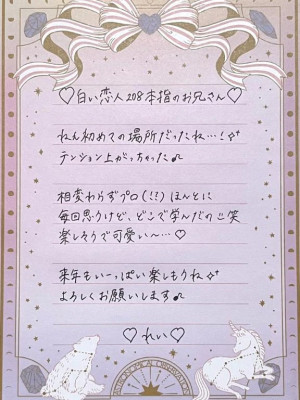 ♡白い恋人208本指のお兄さん♡
ねえ初めての場所だったね…!✧
テンション上がっちゃった♪
相変わらずプロ(!?)ほんとに
毎回思うけど、どこで学んだの☺笑
楽しそうで可愛い〜…♡
来年もいーっぱい楽しもうね✧
よろしくお願いします♪
♡れい♡